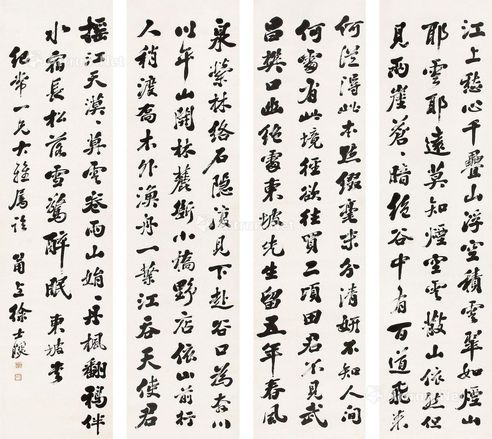 江上愁心千疊山浮空積翠如煙山
耶雲耶遠莫知煙空雲散山依然但
見兩崖蒼〻暗絕谷中有百道飛來
何從得此本點綴毫末分清妍不知人間
何處有此境徑欲往買二頃田君不見武
昌樊口幽絕處東坡先生留五年春風
泉縈林絡石隱復見下赴谷口為奔川
〻平山開林麓斷小橋野店依山前行
人稍渡喬木外漁舟一葉江吞天使君
搖江天漠〻莫雲卷雨山娟〻丹楓翻鴉伴
水宿長松落雪驚醉眠東坡書
紀常一兄大雅屬 甬上徐士